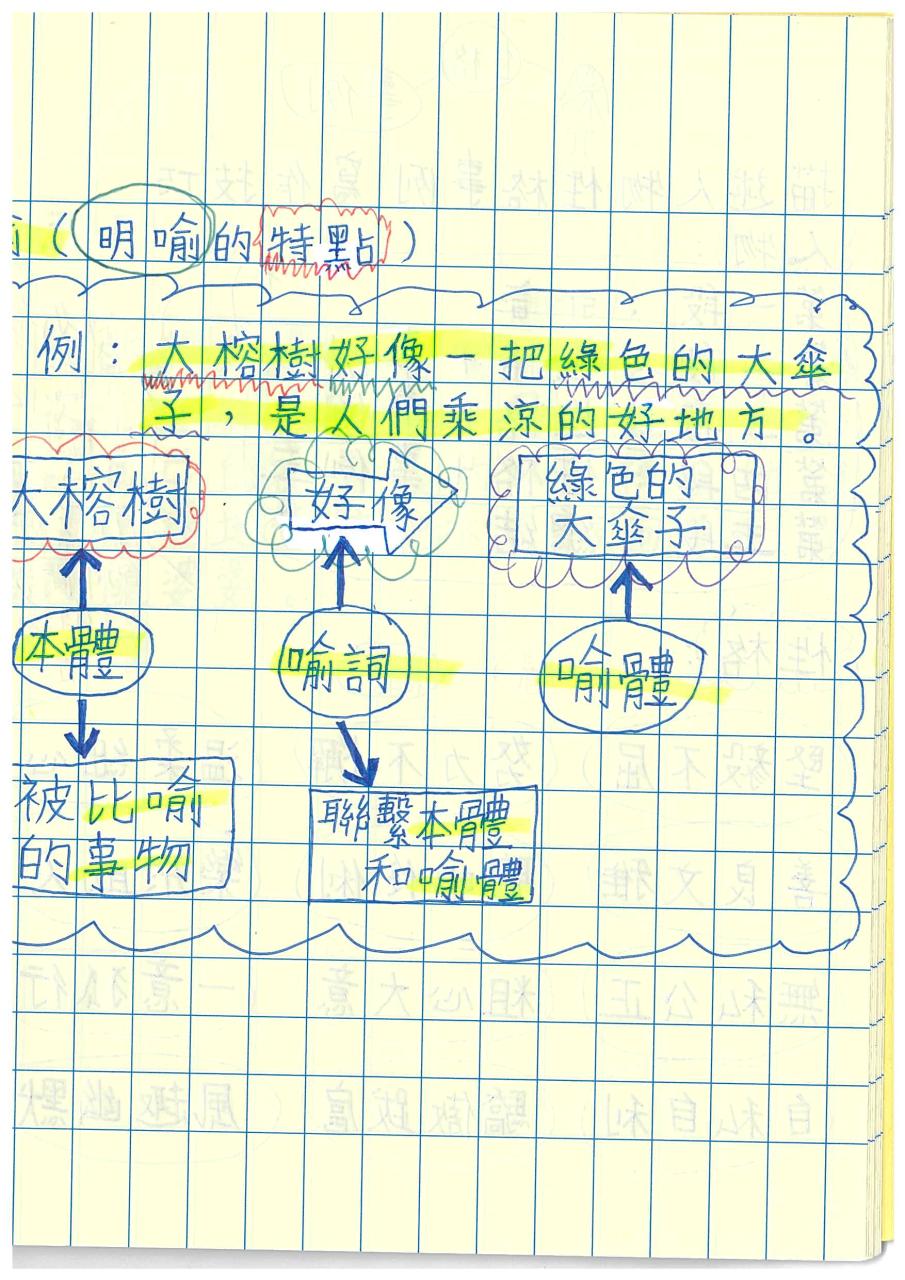 （明喻的特點）
例：大榕樹好像一把綠色的大傘
子，是人們乘涼的好地方。
大榕樹 好像 綠色的
大傘子
本體 喻詞 喻體
被比喻
的事物
聯繫本體
和喻體